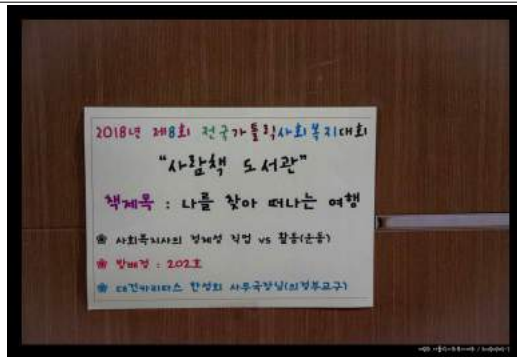 2018년 제8회 전국가톨릭사회복지대회
"사람책 도서관"
책제목 : 나를 찾아 떠나는 여행
사회복지사의 정체성 직업 vs 활동(운동)
방배정 : 202호
대건카리타스 한성희 사무국장님(의정부교구)